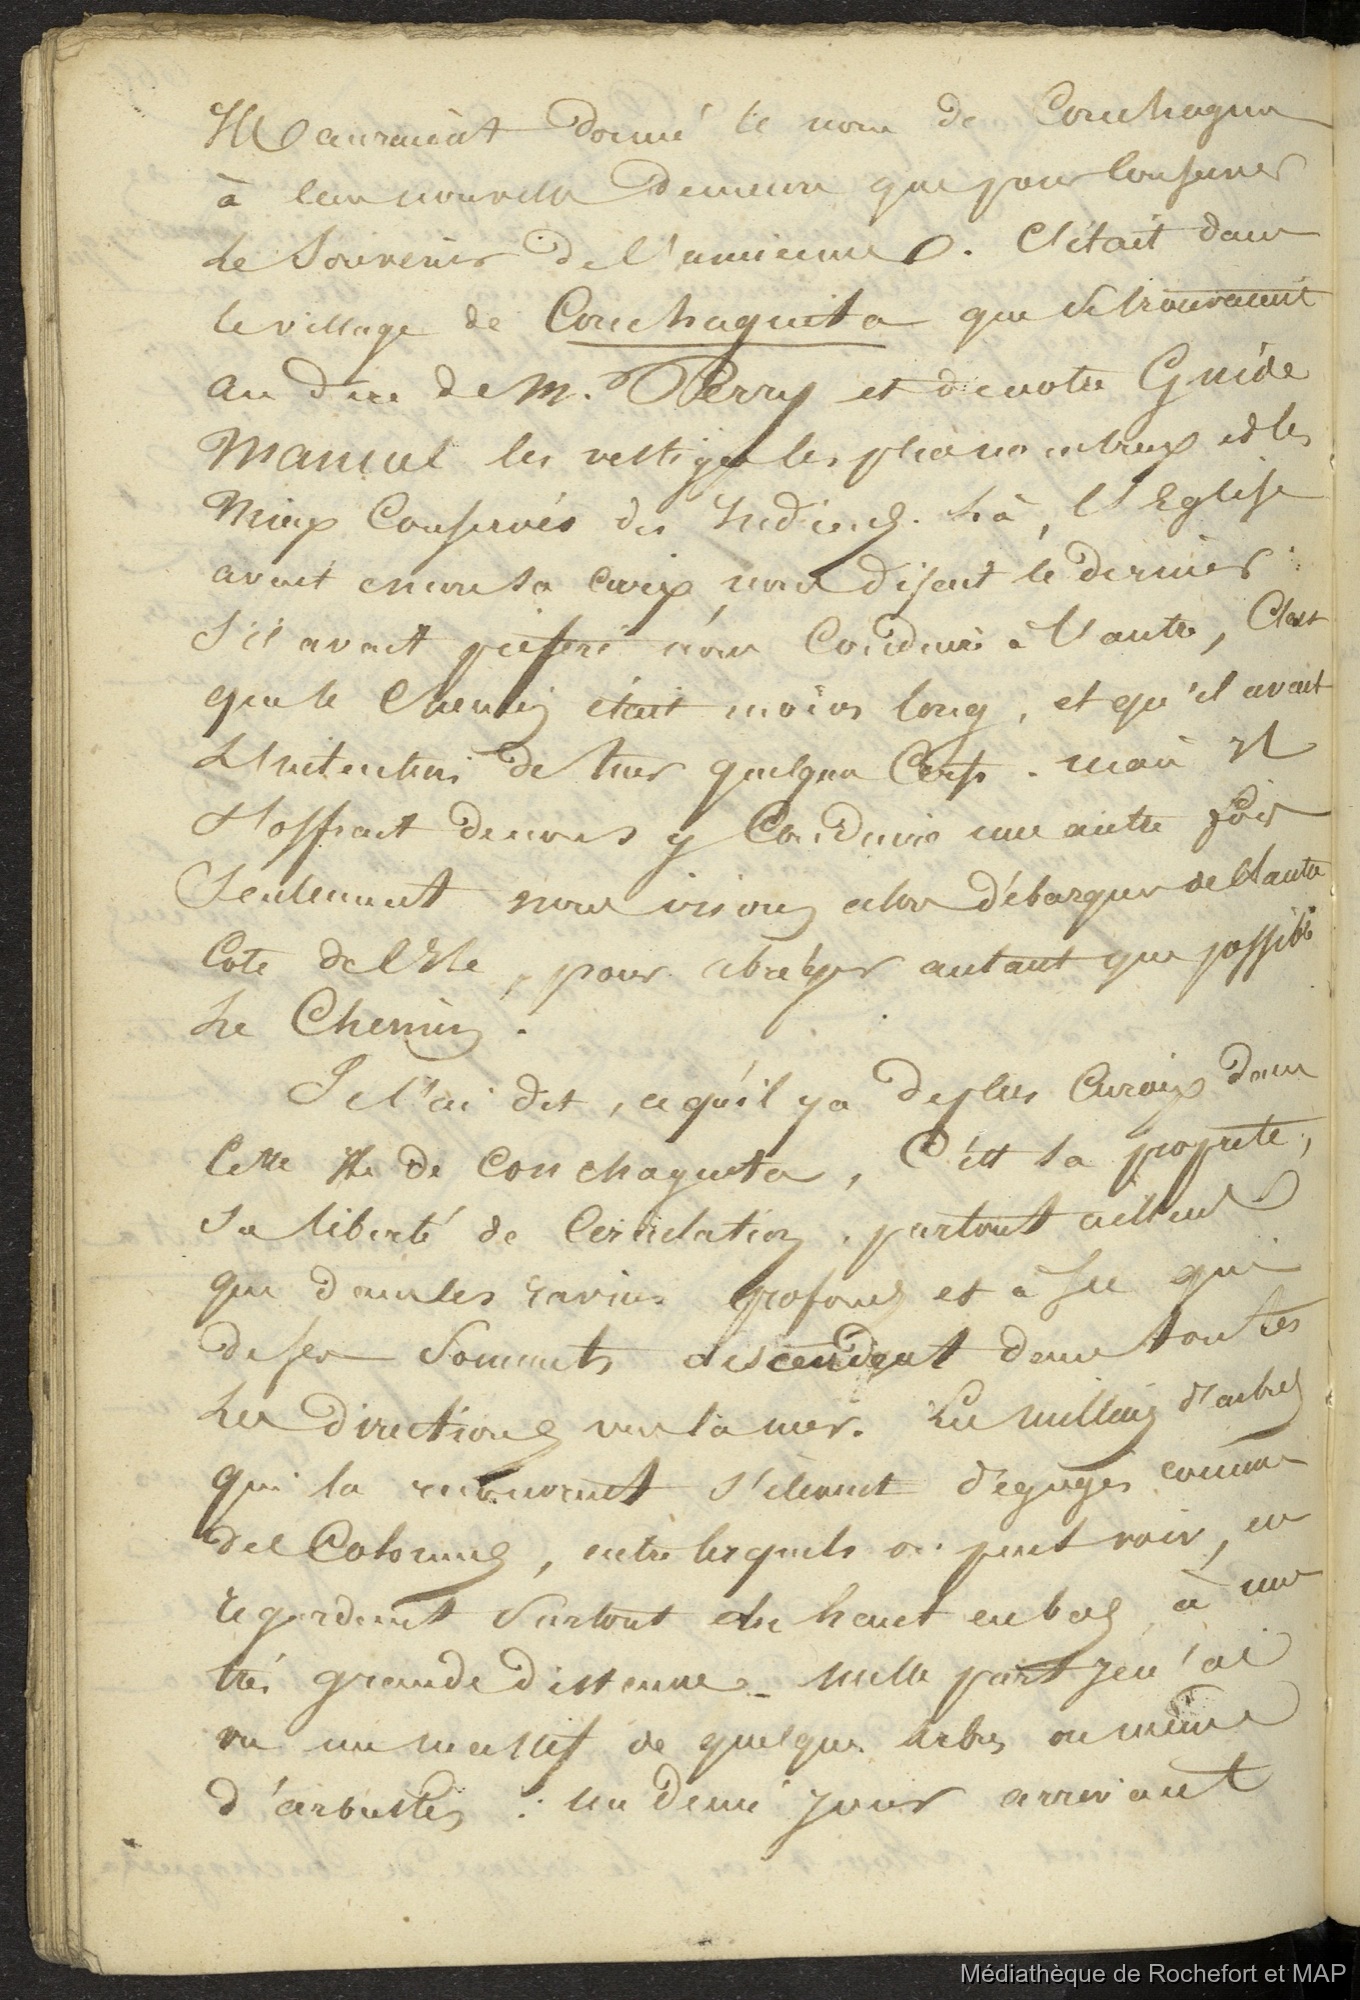 Ils auraient donné le nom de Conchagua
à leur nouvelle demeure que pour conserver
le souvenir de l'ancienne. C'était dans
le village de Conchaguita que se trouvaient
au dire de M. Perry et de notre Guide
Manuel les vestiges les plus nombreux et les
Mieux Conservés des Indiens. Là, l'Eglise
avait encore sa croix, nous disait le dernier :
S'il avait préféré nous Conduire à l'autre, C'est
que le Chemin était moins long, et qu'il avait
L'intention de tuer quelque Cerfs. mais Il
s'offrait de nous y Conduire une autre fois
Seulement nous irions alors débarquer de l'autre
Coté de l'Ile, pour abréger autant que possible
Le Chemin.
Je l'ai dit, ce qu'il y a de plus Curieux dans
Cette Ile de Conchaguita, C'est sa propreté,
Sa liberté de Circulation, partout ailleurs
que dans les ravins profonds et à sec qui
de ses Sommets descendent dans toutes
Les Directions vers la mer. Les milliers d'arbres
qui la recouvrent s'élèvent dégagés comme
des Colonnes, entre lesquels on peut voir, en
regardant Surtout du haut en bas, à une
très grande distance. Nulle part je n'ai
vu un massif de quelques Arbres ou même
d'arbustes : un demi jour arrivant
Médiathèque de Rochefort et MAP